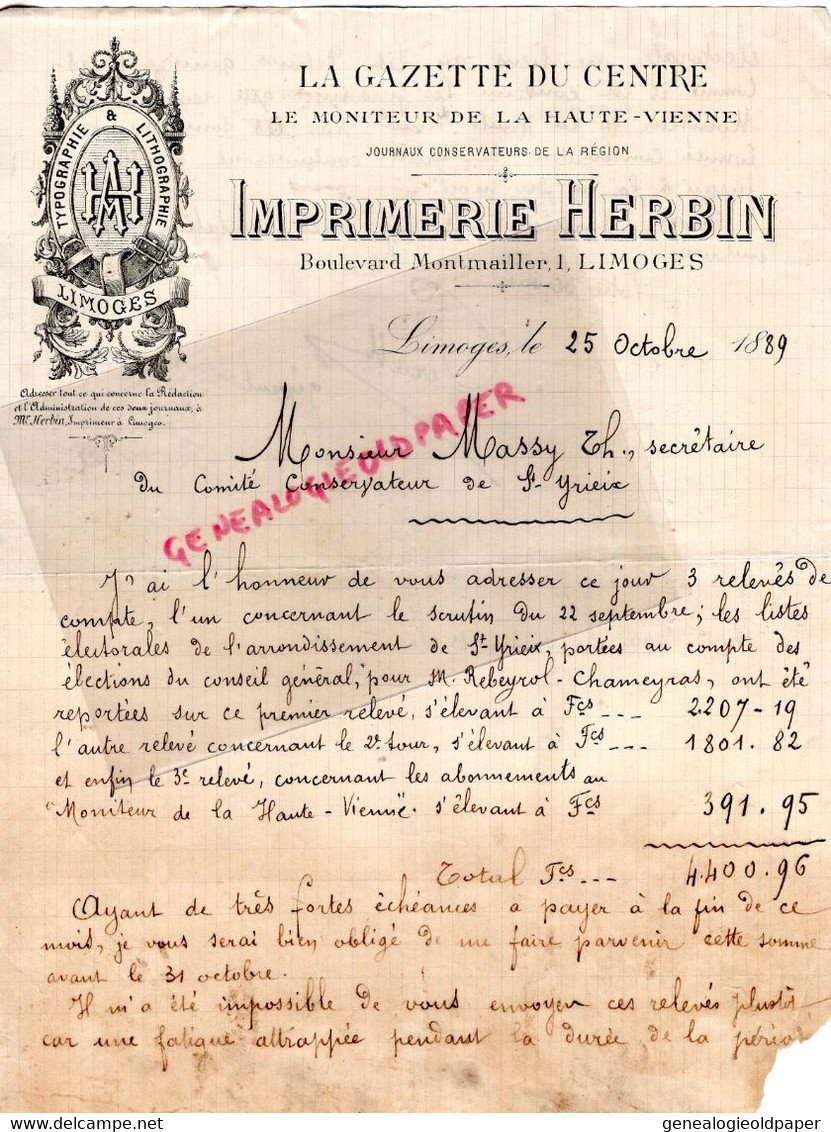 LA GAZETTE DU CENTRE
LE MONITEUR DE LA HAUTE-VIENNE
JOURNAUX CONSERVATEURS DE LA RÉGION
IMPRIMERIE HERBIN
Boulevard Montmailler, 1, LIMOGES
TYPOGRAPHIE & LITHOGRAPHIE
HAM
LIMOGES
Adresser tout ce qui concerne la Rédaction
et l'Administration de ces deux journaux, à
Mr. Herbin, Imprimeur à Limoges.
Limoges, le 25 Octobre 1889
Monsieur Massy Th., secrétaire
du Comité Conservateur de St-Yrieix
GENEALOGIEOLDPAPER
J'ai l'honneur de vous adresser ce jour 3 relevés de
compte, l'un concernant le scrutin du 22 septembre; les listes
électorales de l'arrondissement de St Yrieix, portées au compte des
élections du conseil général, pour M. Rebeyrol-Chameyras, ont été
reportées sur ce premier relevé, s'élevant à Fcs --- 2.207-19
l'autre relevé concernant le 2e tour, s'élevant à Fcs --- 1801.82
et enfin le 3e relevé, concernant les abonnements au
"Moniteur de la Haute-Vienne" s'élevant à Fcs 391.95
Total Fcs --- 4.400.96
Ayant de très fortes échéances a payer à la fin de ce
mois, je vous serai bien obligé de me faire parvenir cette somme
avant le 31 octobre.
Il m'a été impossible de vous envoyer ces relevés plustôt
car une fatigue attrappée pendant la durée de la périod
genealogieoldpaper